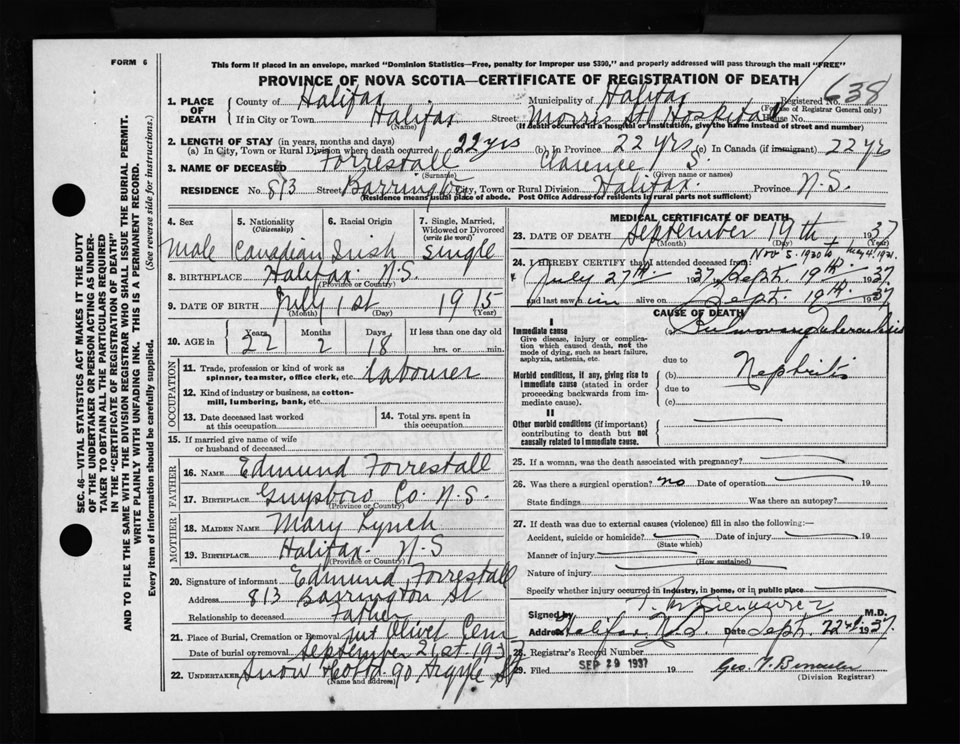 FORM 6
This form if placed in an envelope, marked "Dominion Statistics—Free, penalty for improper use $300," and properly addressed will pass through the mail "FREE"
PROVINCE OF NOVA SCOTIA—CERTIFICATE OF REGISTRATION OF DEATH
638
1. PLACE OF DEATH
County of Halifax Municipality of Halifax Registered No.
(For use of Registrar General only)
If in City or Town Halifax Street Morris St Hospital House No.
(Name) (If death occurred in a hospital or institution, give the name instead of street and number)
2. LENGTH OF STAY (in years, months and days)
(a) In City, Town or Rural Division where death occurred 22 yrs (b) In Province 22 yrs (c) In Canada (if immigrant) 22 yrs
3. NAME OF DECEASED Forrestall Clarence S.
(Surname) (Given name or names)
RESIDENCE No. 813 Street Barrington City, Town or Rural Division Halifax. Province N.S.
(Residence means usual place of abode. Post Office Address for residents in rural parts not sufficient)
4. Sex
Male
5. Nationality
(Citizenship)
Canadian
6. Racial Origin
Irish
7. Single, Married, Widowed or Divorced
(write the word)
Single
8. BIRTHPLACE Halifax N.S.
(Province or Country)
9. DATE OF BIRTH July 1st 1915
(Month) (Day) (Year)
10. AGE in
Years Months Days If less than one day old
22 2 18 hrs. or min.
OCCUPATION
11. Trade, profession or kind of work as spinner, teamster, office clerk, etc. labourer
12. Kind of industry or business, as cotton-mill, lumbering, bank, etc.
13. Date deceased last worked at this occupation
14. Total yrs. spent in this occupation
15. If married give name of wife or husband of deceased
FATHER
16. NAME Edmund Forrestall
17. BIRTHPLACE Guysboro Co. N.S.
(Province or Country)
MOTHER
18. MAIDEN NAME Mary Lynch
19. BIRTHPLACE Halifax. N.S
(Province or Country)
20. Signature of informant Edmund Forrestall
Address 813 Barrington St
Relationship to deceased Father
21. Place of Burial, Cremation or Removal Mt Olivet Cem
Date of burial or removal September 21st 193
22. UNDERTAKER Snow 90 Argyle St
(Name and address)
MEDICAL CERTIFICATE OF DEATH
23. DATE OF DEATH September 19th 1937
(Month) (Day) (Year)
24. I HEREBY CERTIFY that I attended deceased from Nov 5. 1930 to May 4. 1931. +
July 27th 1937 Sept. 19th 1937
and last saw im alive on Sept. 19th 1937
CAUSE OF DEATH
I
Immediate cause
Give disease, injury or complication which caused death, not the mode of dying, such as heart failure, asphyxia, asthenia, etc.
(a) Pulmonary Tuberculosis
due to
Morbid conditions, if any, giving rise to immediate cause (stated in order proceeding backwards from immediate cause).
(b) Nephritis
due to
(c)
II
Other morbid conditions (if important) contributing to death but not causally related to immediate cause.
25. If a woman, was the death associated with pregnancy?
26. Was there a surgical operation? no Date of operation 19
State findings Was there an autopsy?
27. If death was due to external causes (violence) fill in also the following:—
Accident, suicide or homicide? Date of injury 19
(State which)
Manner of injury
(How sustained)
Nature of injury
Specify whether injury occurred in Industry, in home, or in public place
Signed by M.D.
Address Halifax, N.S. Date Sept. 22nd 1937.
28. Registrar's Record Number
29. Filed SEP 29 1937 19
(Division Registrar)
SEC. 46—VITAL STATISTICS ACT MAKES IT THE DUTY
OF THE UNDERTAKER OR PERSON ACTING AS UNDER-
TAKER TO OBTAIN ALL THE PARTICULARS REQUIRED
IN THE "CERTIFICATE OF REGISTRATION OF DEATH"
AND TO FILE THE SAME WITH THE DIVISION REGISTRAR WHO SHALL ISSUE THE BURIAL PERMIT.
WRITE PLAINLY WITH UNFADING INK. THIS IS A PERMANENT RECORD.
Every item of information should be carefully supplied. (See reverse side for instructions.)